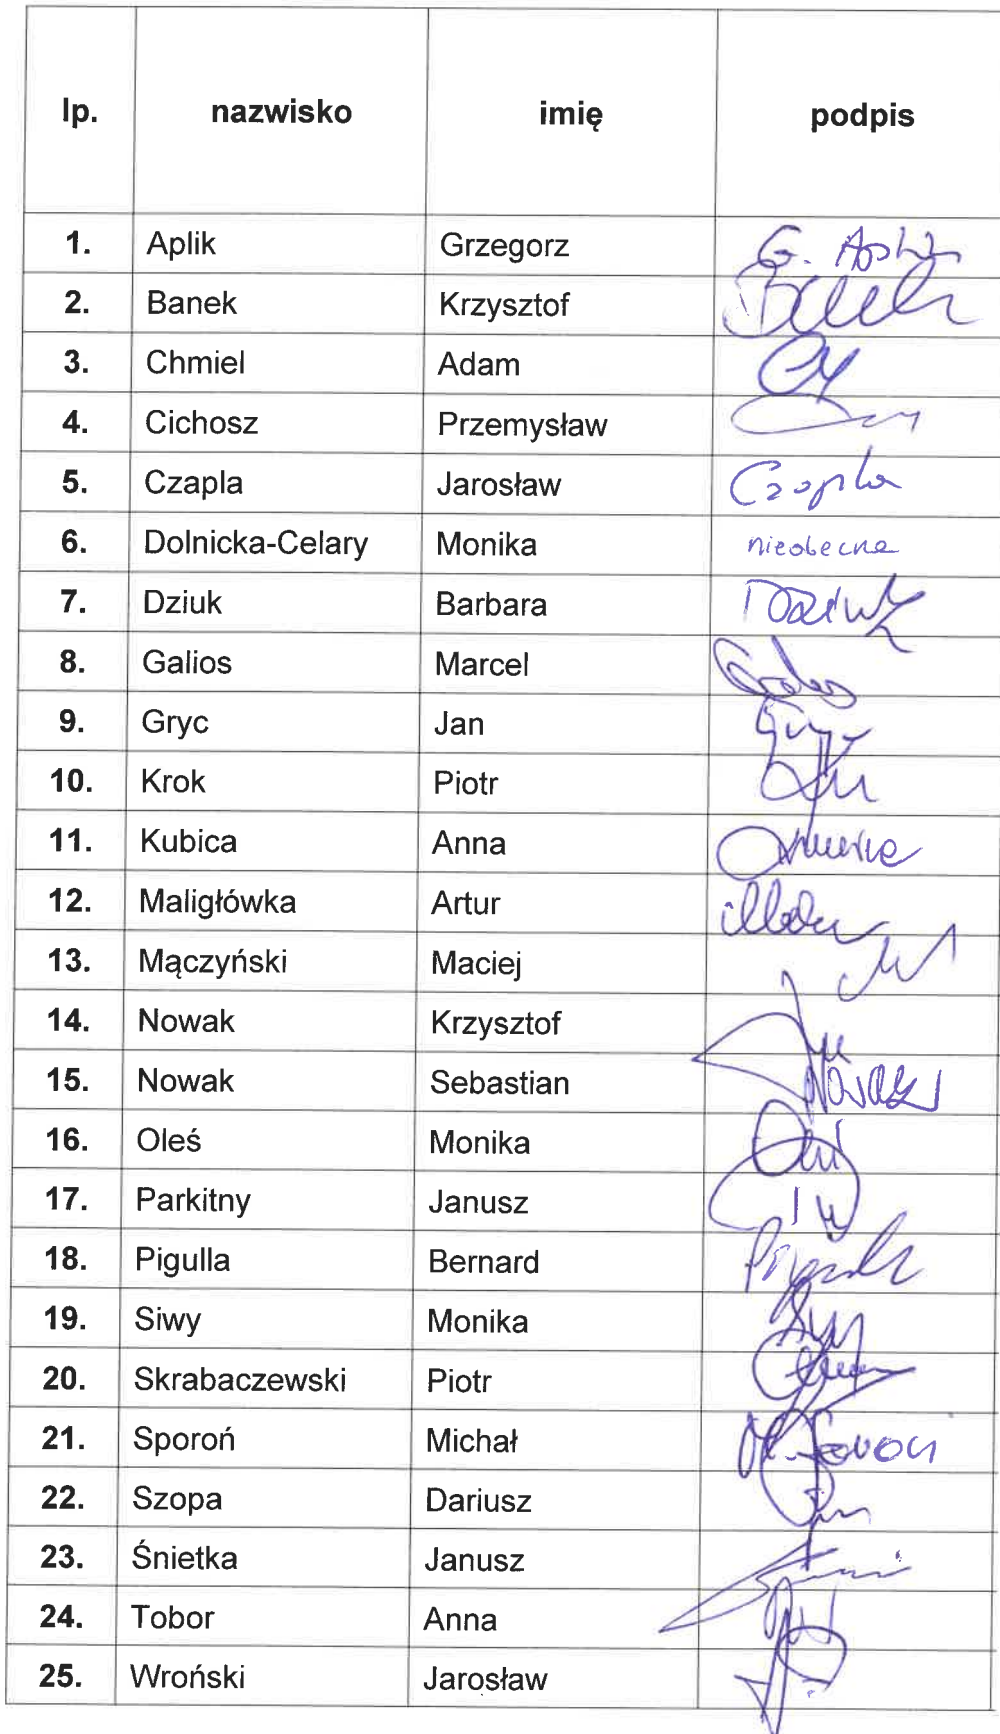 lp. nazwisko imię podpis
1. Aplik Grzegorz G. Aplik
2. Banek Krzysztof
3. Chmiel Adam
4. Cichosz Przemysław
5. Czapla Jarosław Czapla
6. Dolnicka-Celary Monika nieobecna
7. Dziuk Barbara Dziuk
8. Galios Marcel
9. Gryc Jan
10. Krok Piotr
11. Kubica Anna
12. Maligłówka Artur
13. Mączyński Maciej
14. Nowak Krzysztof
15. Nowak Sebastian Nowak
16. Oleś Monika
17. Parkitny Janusz
18. Pigulla Bernard
19. Siwy Monika
20. Skrabaczewski Piotr
21. Sporoń Michał
22. Szopa Dariusz
23. Śnietka Janusz
24. Tobor Anna
25. Wroński Jarosław